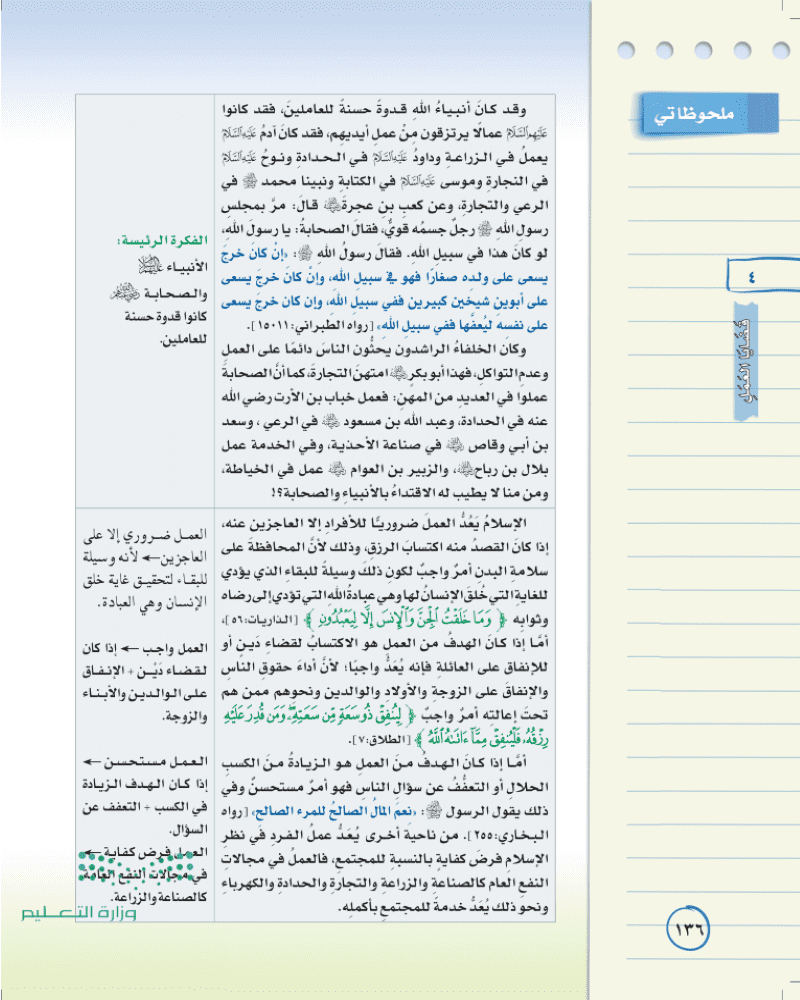 ملحوظاتي
٤
قضايا العمل
وقد كانَ أنبياءُ اللهِ قدوةً حسنةً للعاملينَ، فقد كانوا
عَلَيْهِمُ السَّلَامُ عمالًا يرتزقون مِنْ عملِ أيديهِم، فقد كانَ آدمُ عَلَيْهِ السَّلَامُ
يعملُ في الزراعةِ وداودُ عَلَيْهِ السَّلَامُ في الحدادةِ ونوحُ عَلَيْهِ السَّلَامُ
في النجارةِ وموسى عَلَيْهِ السَّلَامُ في الكتابةِ ونبينا محمد ﷺ في
الرعي والتجارةِ، وعن كعبِ بنِ عجرةَ رضي الله عنه قالَ: مرَّ بمجلسِ
رسولِ اللهِ ﷺ رجلٌ جسمُه قويٌّ، فقالَ الصحابةُ: يا رسولَ اللهِ،
لو كانَ هذا في سبيلِ اللهِ. فقالَ رسولُ اللهِ ﷺ: «إنْ كانَ خرجَ
يسعى على ولدِه صغارًا فهو في سبيلِ اللهِ، وإنْ كانَ خرجَ يسعى
على أبوينِ شيخينِ كبيرينِ ففي سبيلِ اللهِ، وإن كان خرجَ يسعى
على نفسِه ليُعفَّها ففي سبيلِ اللهِ» [رواه الطبراني:١٥٠١١].
وكان الخلفاءُ الراشدون يحثُّون الناسَ دائمًا على العملِ
وعدمِ التواكلِ، فهذا أبو بكرٍ رضي الله عنه امتهنَ التجارةَ، كما أنَّ الصحابةَ
عملوا في العديدِ من المهنِ: فعمل خباب بن الأرت رضي الله
عنه في الحدادة، وعبد الله بن مسعود رضي الله عنه في الرعي ، وسعد
بن أبي وقاص رضي الله عنه في صناعة الأحذية، وفي الخدمة عمل
بلال بن رباح رضي الله عنه، والزبير بن العوام رضي الله عنه عمل في الخياطة،
ومن منا لا يطيب له الاقتداءُ بالأنبياءِ والصحابة؟!
الفكرة الرئيسة:
الأنبياء عليهم السلام
والصحابة رضي الله عنهم
كانوا قدوة حسنة
للعاملين.
الإسلامُ يَعُدُّ العملَ ضروريًّا للأفرادِ إلا العاجزين عنه،
إذا كانَ القصدُ منه اكتسابَ الرزقِ، وذلك لأنَّ المحافظةَ على
سلامةِ البدنِ أمرٌ واجبٌ لكونِ ذلكَ وسيلةً للبقاءِ الذي يؤدي
للغايةِ التي خُلقَ الإنسانُ لها وهي عبادةُ اللهِ التي تؤدي إلى رضاه
وثوابِه ﴿ وَمَا خَلَقْتُ ٱلْجِنَّ وَٱلْإِنسَ إِلَّا لِيَعْبُدُونِ ﴾ [الذاريات:٥٦]،
أمَّا إذا كانَ الهدفُ من العملِ هو الاكتسابُ لقضاءِ دَينٍ أو
للإنفاقِ على العائلةِ فإنه يُعَدُّ واجبًا؛ لأنَّ أداءَ حقوقِ الناسِ
والإنفاقَ على الزوجةِ والأولادِ والوالدينِ ونحوِهم ممن هم
تحتَ إعالتِه أمرٌ واجبٌ ﴿ لِيُنفِقْ ذُو سَعَةٍ مِّن سَعَتِهِۦ وَمَن قُدِرَ عَلَيْهِ
رِزْقُهُۥ فَلْيُنفِقْ مِمَّآ ءَاتَىٰهُ ٱللَّهُ ﴾ [الطلاق:٧].
أمَّا إذا كانَ الهدفُ منَ العملِ هو الزيادةُ منَ الكسبِ
الحلالِ أو التعفُّفُ عن سؤالِ الناسِ فهو أمرٌ مستحسنٌ وفي
ذلك يقول الرسول ﷺ: «نعمَ المالُ الصالحُ للمرء الصالح» [رواه
البخاري:٢٥٥]. من ناحيةٍ أخرى يُعَدُّ عملُ الفردِ في نظرِ
الإسلامِ فرضَ كفايةٍ بالنسبةِ للمجتمعِ، فالعملُ في مجالاتِ
النفعِ العام كالصناعةِ والزراعةِ والتجارةِ والحدادةِ والكهرباءِ
ونحوِ ذلك يُعَدُّ خدمةً للمجتمعِ بأكملِه.
العمل ضروري إلا على
العاجزين ← لأنه وسيلة
للبقاء لتحقيق غاية خلق
الإنسان وهي العبادة.
العمل واجب ← إذا كان
لقضاء دَيْن + الإنفاق
على الوالدين والأبناء
والزوجة.
العمل مستحسن ←
إذا كان الهدف الزيادة
في الكسب + التعفف عن
السؤال.
العمل فرض كفاية ←
في مجالات النفع العامة
كالصناعة والزراعة.
وزارة التعليم
١٣٦